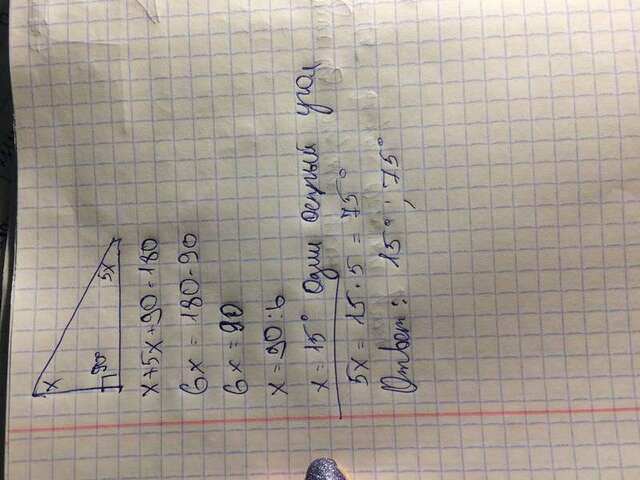 x
90°
5x
x+5x+90=180
6x = 180-90
6x = 90
x = 90:6
x = 15° один острый угол
5x = 15·5 = 75°
Ответ: 15°; 75°